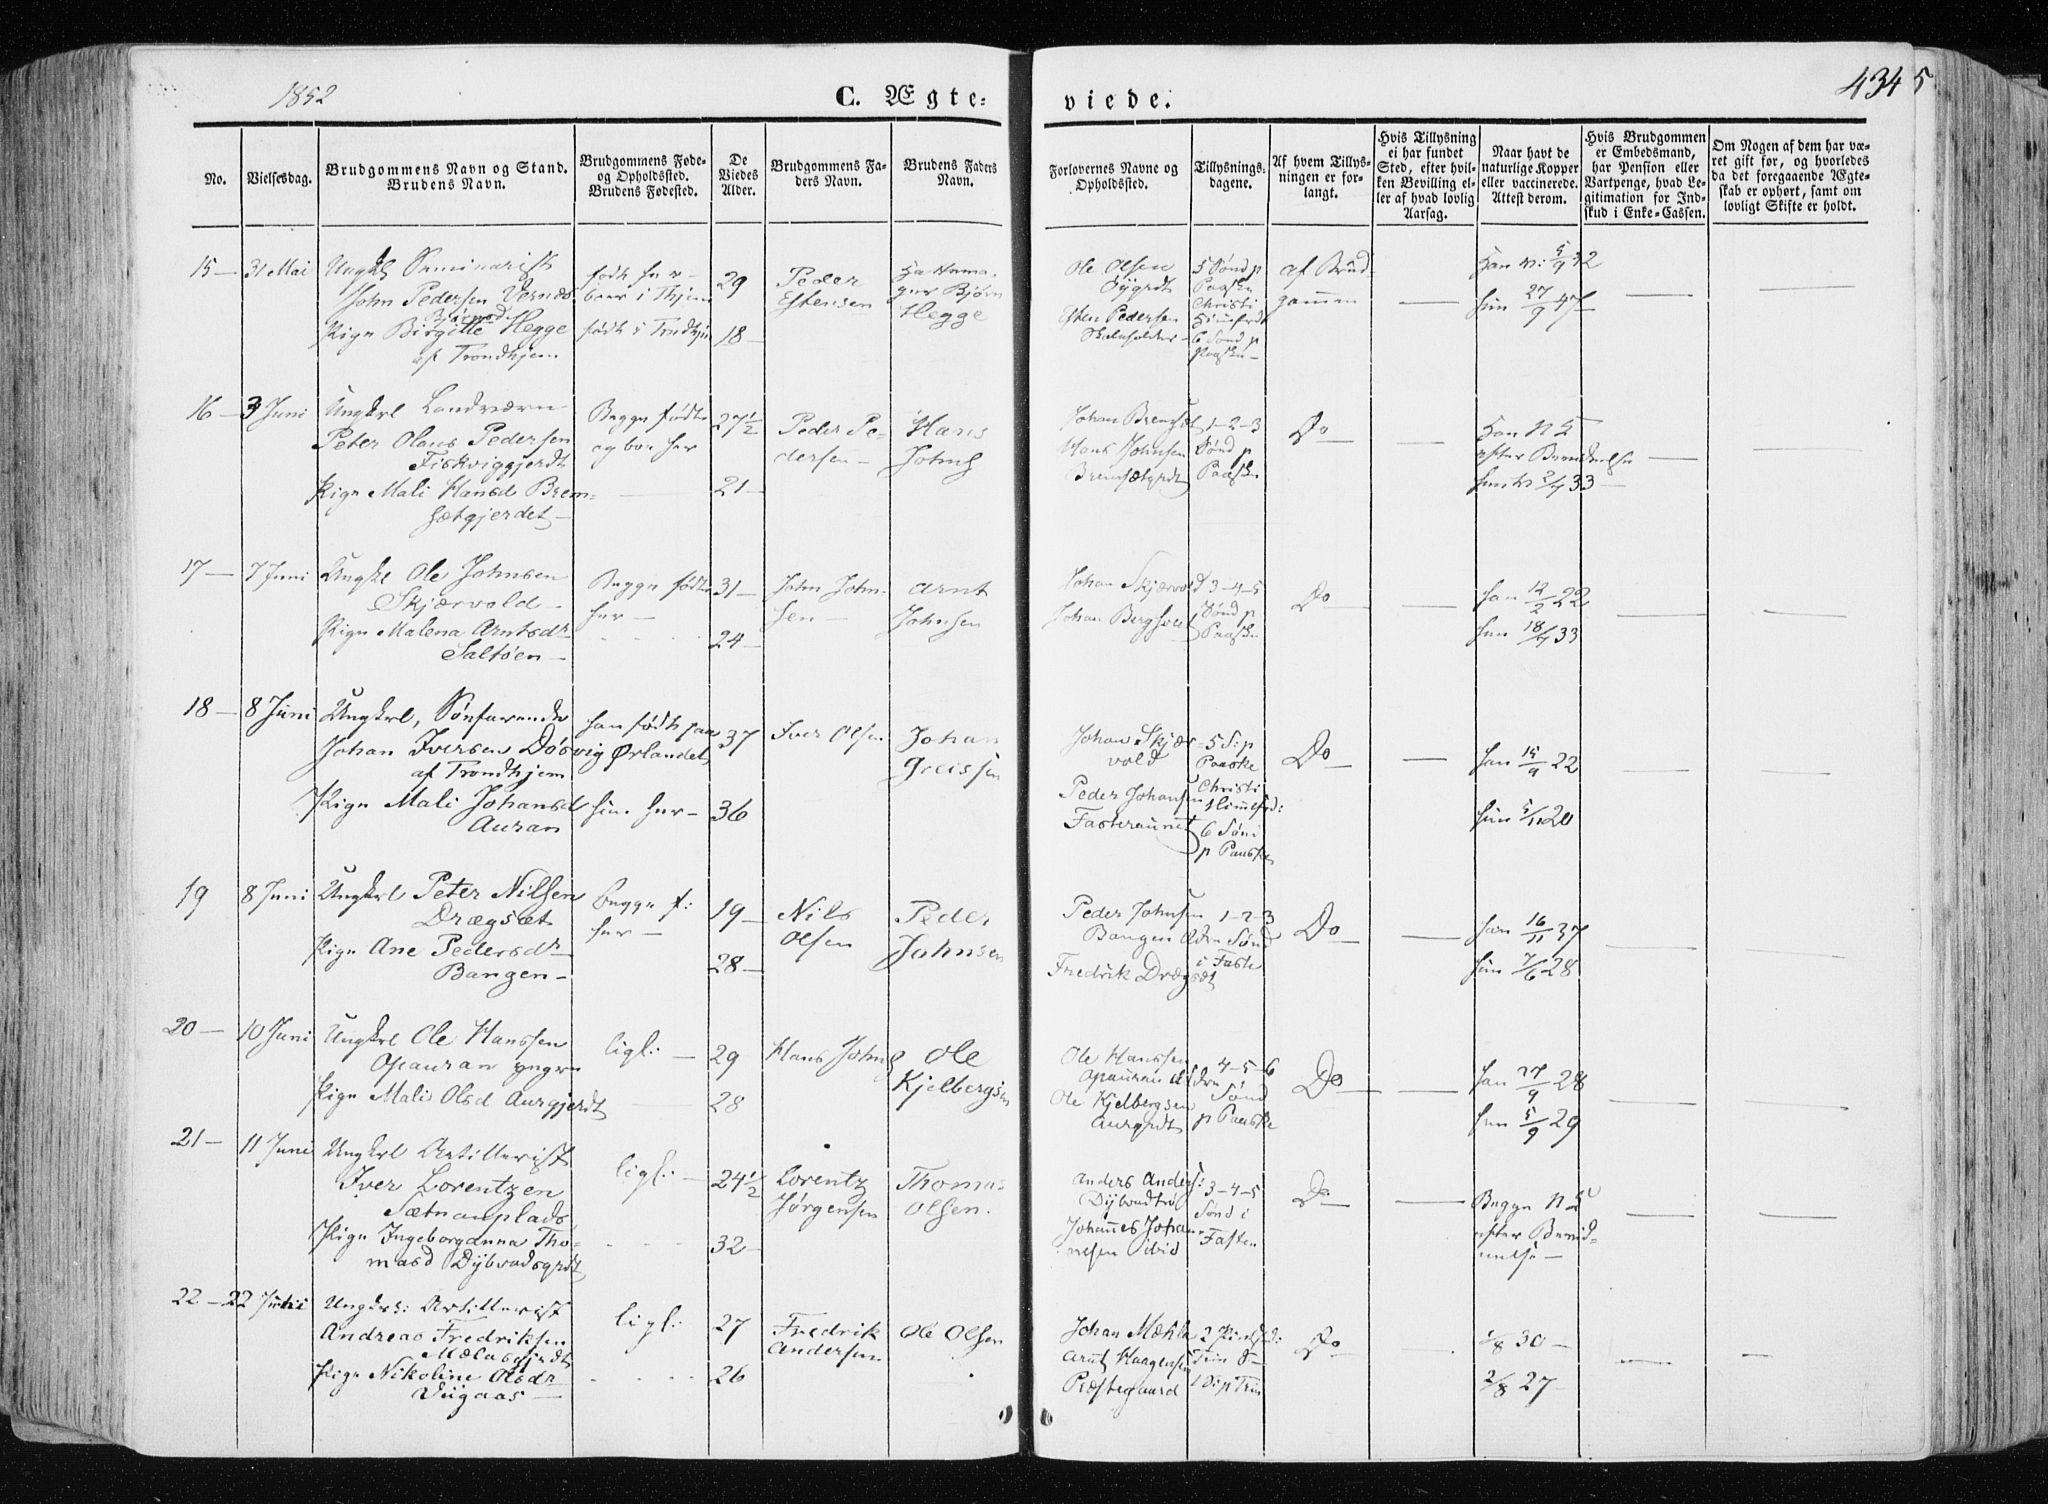 1852
C. Ægte-
viede.
4345
No.
Vielsesdag.
Brudgommens Navn og Stand.
Brudens Navn.
Brudgommens Føde-
og Opholdssted.
Brudens Fødested.
De
Viedes
Alder.
Brudgommens Fa-
ders Navn.
Brudens Faders
Navn.
Forlovernes Navne og
Opholdssted.
Tillysnings-
dagene.
Af hvem Tillys-
ningen er for-
langt.
Hvis Tillysning
ei har fundet
Sted, efter hvil-
ken Bevilling el-
ler af hvad lovlig
Aarsag.
Naar havt de
naturlige Kopper
eller vaccinerede.
Attest derom.
Hvis Brudgommen
er Embedsmand,
har Pension eller
Vartpenge, hvad Le-
gitimation for Ind-
skud i Enke-Cassen.
Om Nogen af dem har væ-
ret gift før, og hvorledes
da det foregaaende Ægte-
skab er ophørt, samt om
lovligt Skifte er holdt.
15 — 31 Mai
Ungkl Seminarist
John Pedersen Vernæs
Bjørnsd
Pige Birgitte Hegge
af Trondhjem
født her
boer i Thjem
født i Trndhjm
29
18 —
Peder
Estensen
Bjørn
Hegge
Ole Olsen
Esten Pedersen
5 Sønd p
Paaske
Christi
Himfrdt
6 Sønd p
Paaske —
af Brud-
gommen
Han v: 5/9 32
Hun 27/9 47
16 — 3 Juni
Ungkrl Landværn
Peter Olaus Pedersen
Fiskviggjerdt
Pige Mali Hansd Brem-
sætgjerdet —
Begge fødte
og boe her
27½
21 —
Peder Pe-
dersen —
Hans
Johns
Johan Bremset
Hans Johnsen
Bremsetgrdt
1–2–3
Sønd p
Paaske
Do
Han N L
efter Beretning
hun v 2/7 33
17 — 7 Juni
Ungkl Ole Johnsen
Skjærvold —
Pige Malena Arntsdr
Saltøen —
Begge fødte
her —
31 —
24 —
John John-
sen —
Arnt
Johnsen
Johan Skjærvold
Johan Bergsvee
3–4–5
Sønd p
Paaske
Do
han 12/2 22
hun 18/7 33
18 — 8 Juni
Ungkrl, Sønfarende
Johan Iversen Døsvig
af Trondhjem
Pige Mali Johansd
Auran
han født paa
Ørlandet
hun her —
37
36
Iver Olsen
Johan
Greissen
Johan Skjær-
vold
Peder Johansen
Fasteraunet
5 S: p
Paaske
Christi
Himmelfrd:
6 Søn:
p Paaske
Do
han 15/9 22
hun 5/11 20
19
8 Juni
Ungkrl Peter Nilsen
Drægsæt
Pige Ane Pedersdr
Bangen —
begge f:
her —
19 —
28 —
Nils
Olsen
Peder
Johnsen
Peder Johnsen
Bangen
Fredrik Drægsdt
1–2–3
Sønd
i Faste
Do
han 16/11 37
hun 7/6 28
20 — 10 Juni
Ungkrl Ole Hanssen
Opauran yngre
Pige Mali Olsd Aurgjerdt
ligl: —
29
28
Hans Johns
Ole
Kjelbergsen
Ole Hanssen
Opauran ældre
Ole Kjelbergsen
Aurgrdt
4–5–6
Sønd
p Paaske
Do
han 27/9 28
hun 5/9 29
21 — 11 Juni
Ungkrl Artillerist
Iver Lorentzen
Sætnanplads
Pige Ingeborganna Tho-
masd Dybvadsgrdt
ligl: —
24½
32 —
Lorentz
Jørgensen
Thomas
Olsen.
Anders Anders:
Dybvadtrø
Johannes Johan-
nesen ibid
3–4–5
Sønd i
Fasten
Do
Begge N L
efter Beret-
nelse —
22. — 22 Juni
Ungkrs: Artillerist
Andreas Fredriksen
Mælasgjerdt
Pige Nikoline Olsdr
Viigaas —
ligl:
27
26
Fredrik
Andersen
Ole Olsen
Johan Mæhla
Arnt Haagensen
Præstegaard
2 Pintsd:
Trin S —
1 S: p Trin
Do
1/8 30 —
2/8 27 —